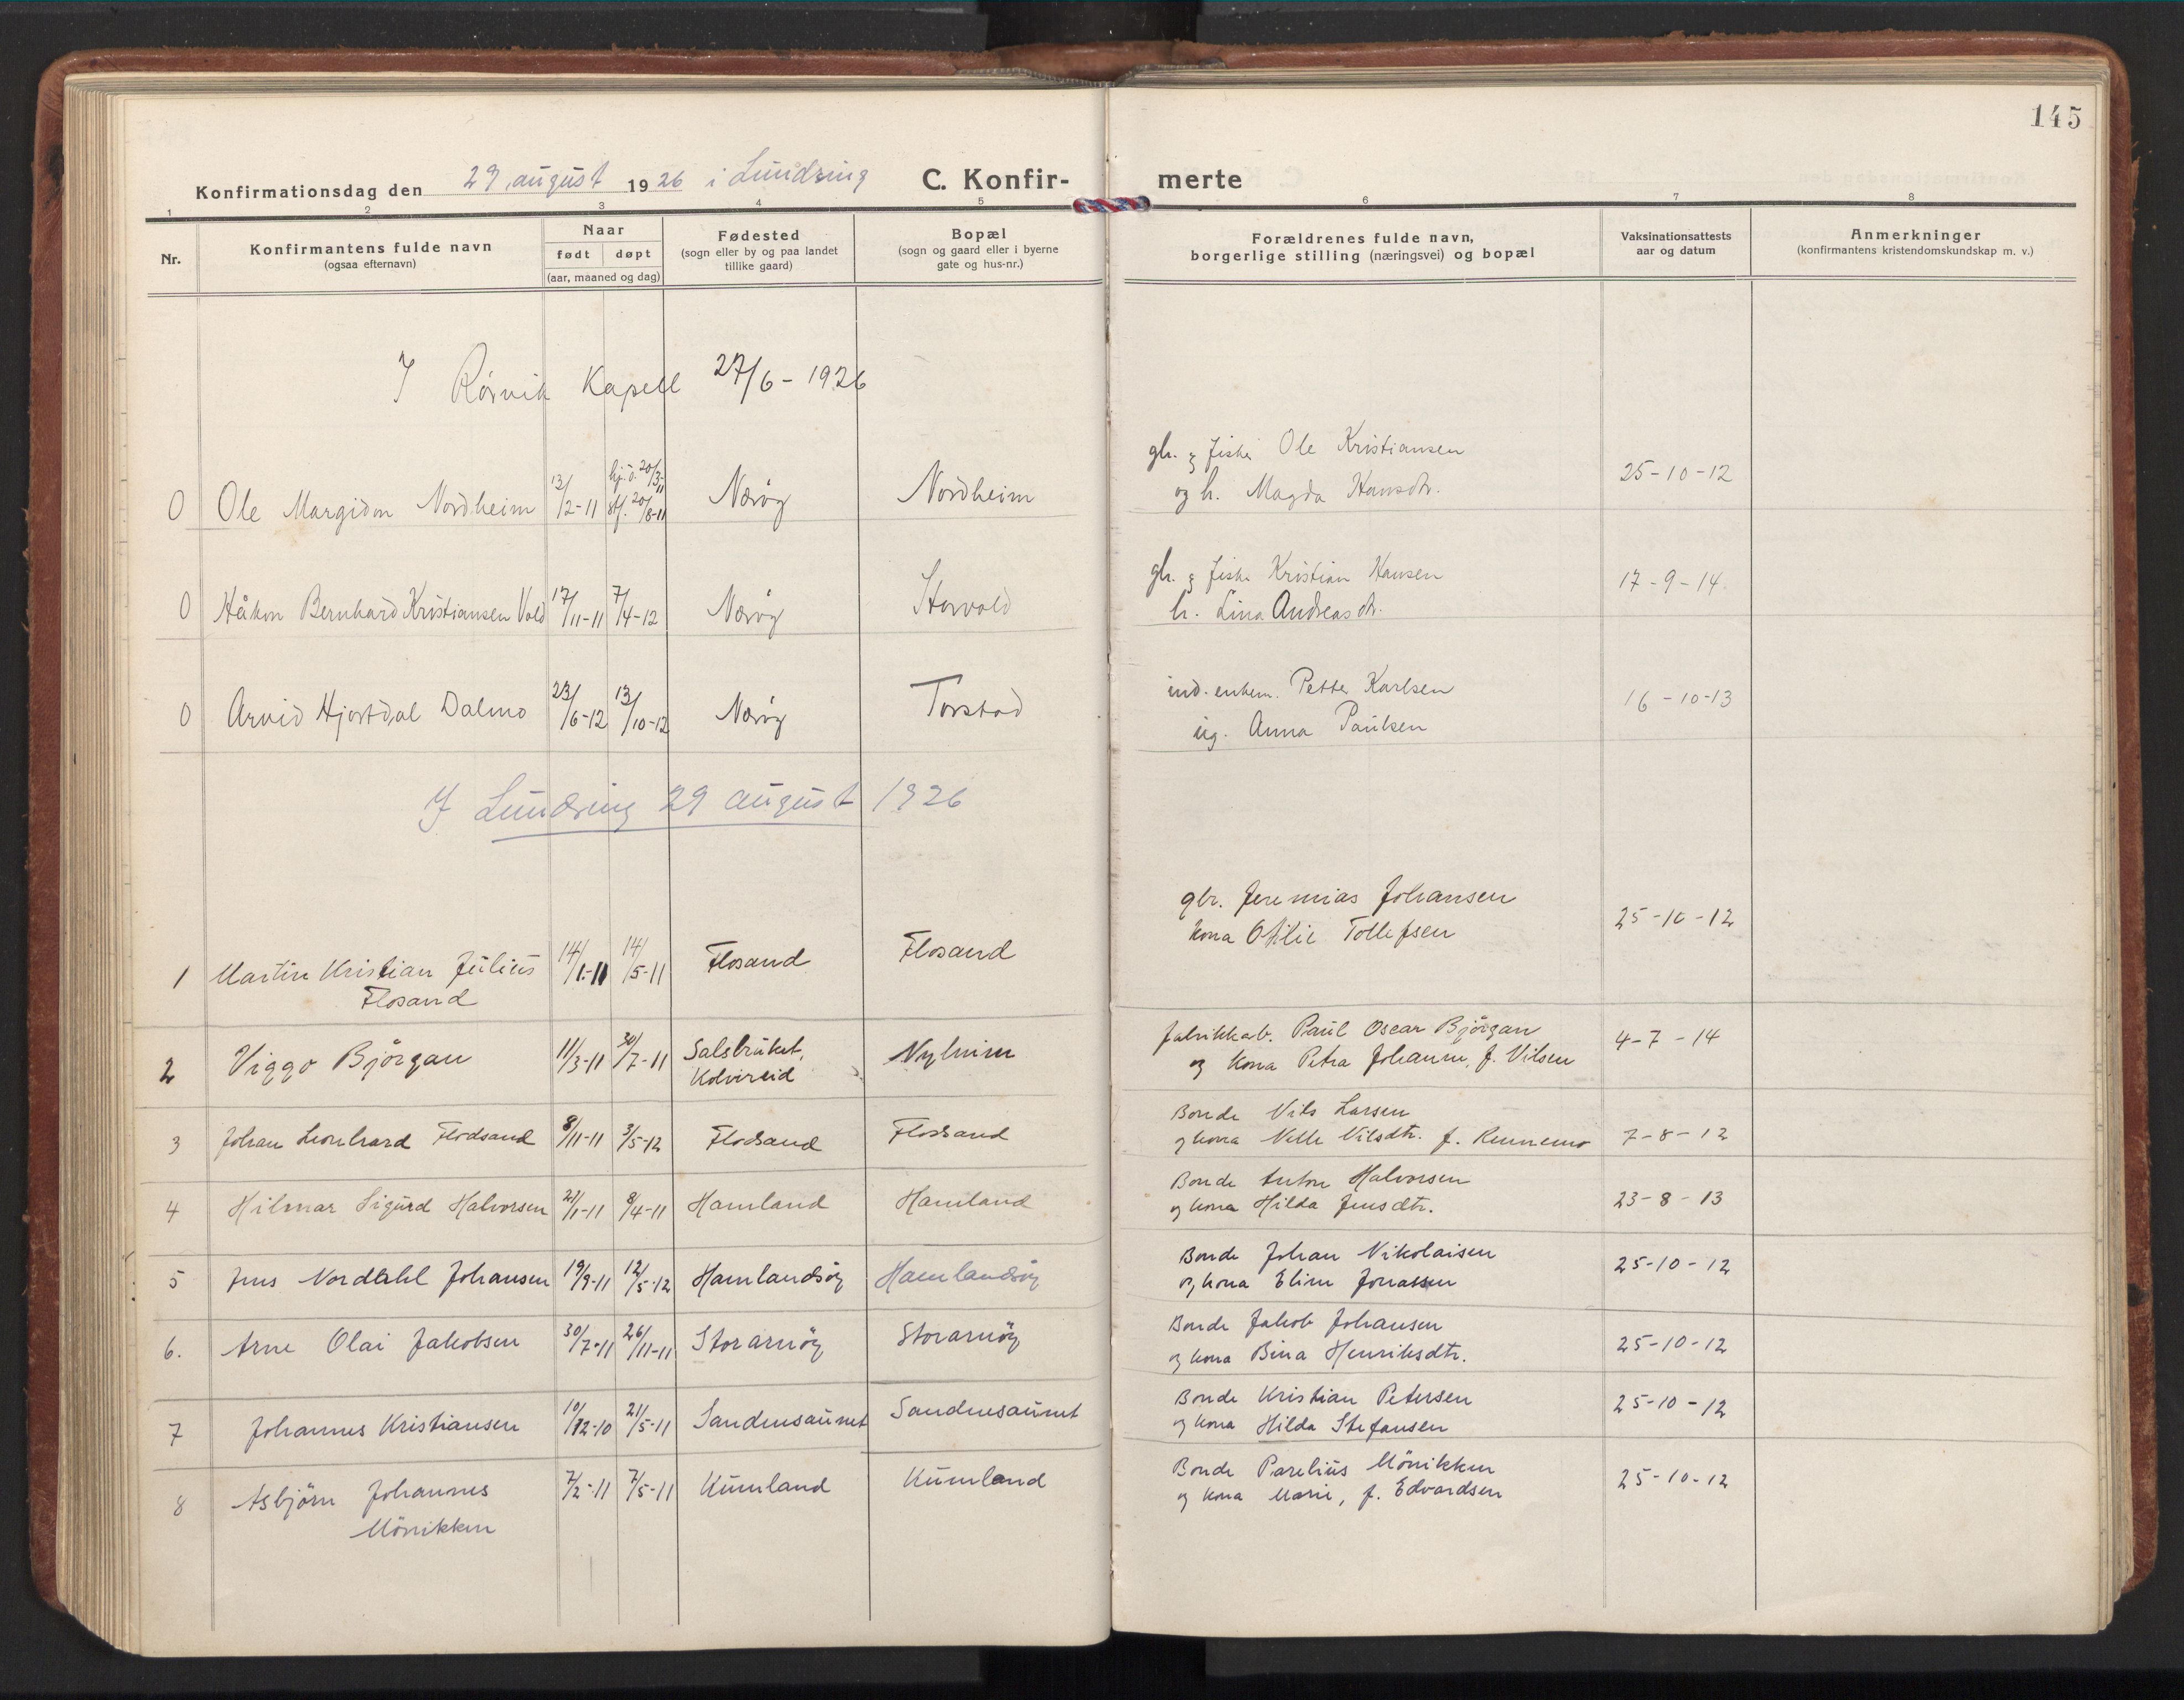 145
Konfirmationsdag den 29. august 1926 i Lundring C. Konfir- merte
1 2 3 4 5 6 7 8
Nr.
Konfirmantens fulde navn
(ogsaa efternavn)
Naar
født døpt
(aar, maaned og dag)
Fødested
(sogn eller by og paa landet
tillike gaard)
Bopæl
(sogn og gaard eller i byerne
gate og hus-nr.)
Forældrenes fulde navn,
borgerlige stilling (næringsvei) og bopæl
Vaksinationsattests
aar og datum
Anmerkninger
(konfirmantens kristendomskundskap m. v.)
I Rørvik Kapell 27/6-1926
0 Ole Margidon Nordheim 13/2-11 hj.d. 20/3-11 stf. 20/8-11 Nærøy Nordheim
gbr. og fisker Ole Kristiansen
og h. Magda Hansdtr.
25-10-12
0 Håkon Bernhard Kristiansen Vold 17/11-11 7/4-12 Nærøy Storvold
gbr. og fisker Kristian Hansen
h. Lina Andreasdtr.
17-9-14
0 Arvid Hjortdal Dalmo 23/6-12 13/10-12 Nærøy Torstad
ind. enkem. Petter Karlsen
ug. Anna Paulsen
16-10-13
I Lundring 29 august 1926
1 Martin Kristian Julius
Flosand
14/1-11 14/5-11 Flosand Flosand
gbr. Jeremias Johansen
kona Otilie Tollefsen
25-10-12
2 Viggo Björgan 11/3-11 30/7-11 Salsbruket,
Kolvereid
Nyheim
fabrikkarb. Paul Oscar Björgan
og kona Petra Johanne, f. Nilsen
4-7-14
3 Johan Leonhard Flodsand 8/11-11 3/5-12 Flodsand Flodsand
Bonde Nils Larsen
og kona Nelle Nilsdtr. f. Rennemo
7-8-12
4 Hilmar Sigurd Halvorsen 21/1-11 8/4-11 Hamland Hamland
Bonde Anton Halvorsen
og kona Hilda Jensdtr.
23-8-13
5 Jens Nordahl Johansen 19/9-11 12/5-12 Hamlandsöy Hamlandsöy
Bonde Johan Nikolaisen
og kona Eline Jonassen
25-10-12
6. Arne Olai Jakobsen 30/7-11 26/11-11 Storarnöy Storarnöy
Bonde Jakob Johansen
og kona Bina Henriksdtr.
25-10-12
7 Johannes Kristiansen 10/12-10 21/5-11 Sandnesaunet Sandnesaunet
Bonde Kristian Petersen
og kona Hilda Stefansen
25-10-12
8 Asbjörn Johannes
Mönikken
7/2-11 7/5-11 Kumland Kumland
Bonde Parelius Mönikken
og kona Marie, f. Edvardsen
25-10-12